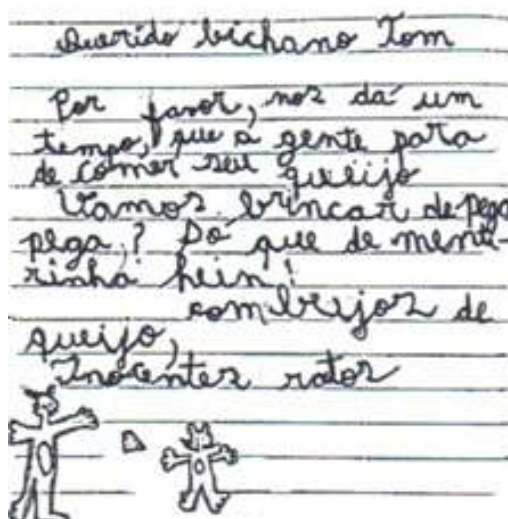 Querido bichano Tom
Por favor, nos dá um
tempo, que a gente para
de comer seu queijo
Vamos brincar de pega
pega? Só que de menti-
rinha hein!
com beijos de
queijo,
Inocentes ratos